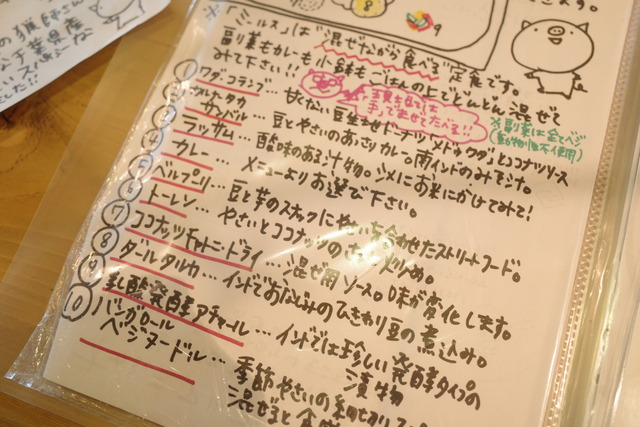 8
9
※「ミールス」は"混ぜながら食べる"定食です。
副菜もカレーも小鉢もごはんの上でどんどん混ぜて
みて下さい!!
手で混ぜてたべる!!
※副菜は全てベジ
(動物性不使用)
① ワダ・コランブ… 甘くない豆生地ドーナツ"メドゥワダ"とココナツソース
② サンバル… 豆とやさいのあっさりカレー。南インドのみそ汁。
③ ラッサム… 酸味のある汁物。シメにお米にかけてみて!
④ カレー… メニューよりお選び下さい。
⑤ ベルプリ… 豆と芋のスナックにやさいを合わせたストリートフード。
⑥ トーレン… やさいとココナッツの
⑦ ココナッツチャトニ・ドライ… 混ぜ用ソース。味が変化します。
⑧ ダールタルカ… インドでおなじみのひきわり豆の煮込み。
⑨ 乳酸発酵アチャール… インドでは珍しい発酵タイプの
漬物
⑩ バンガロール
ベジヌードル… 季節やさいの細切り
混ぜると